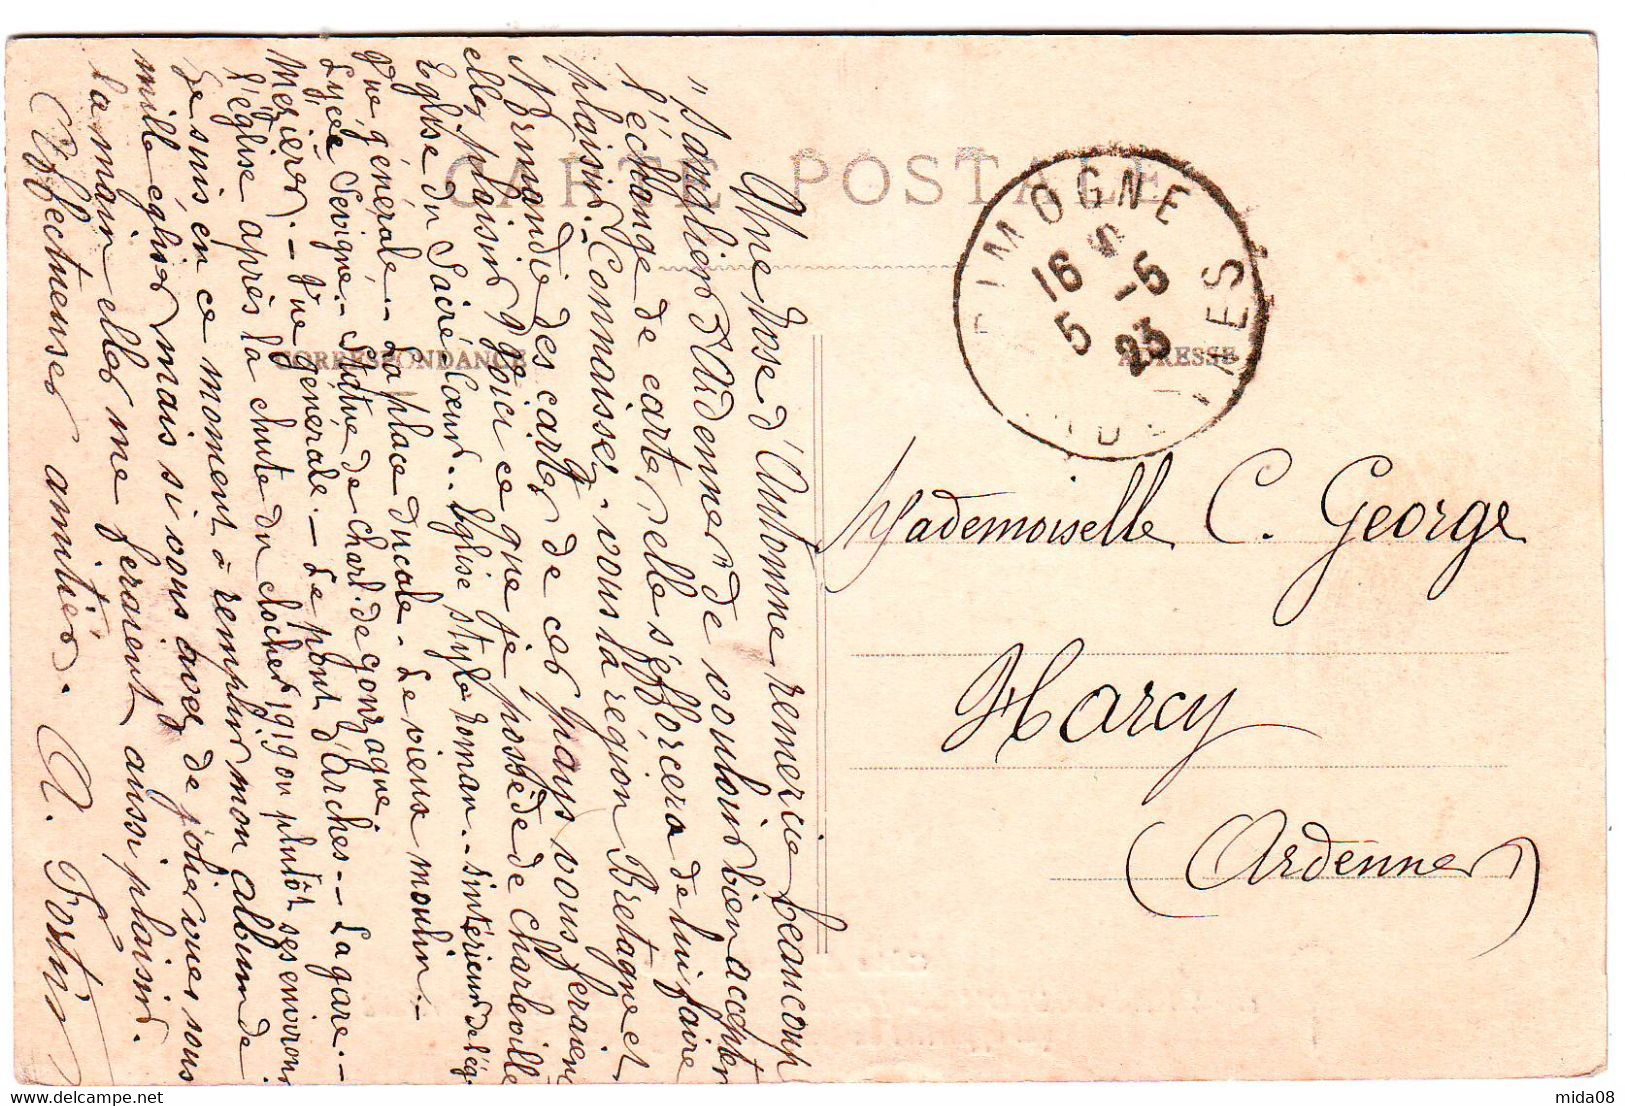 CARTE POSTALE
CORRESPONDANCE
ADRESSE
RIMOGNE
16 -5
5 23
ARDENNES
Une Rose d'Automne remercie beaucoup
"Sangliers d'Ardennes" de vouloir bien accepter
l'échange de cartes, elle s'efforcera de lui faire
plaisir. Connaissez-vous la région Bretagne et
Normandie des cartes de ces pays vous feraient
elles plaisir? Voici ce que je possède de Charleville
Eglise du Sacré-Cœur.. Eglise style roman.. Intérieur de l'ég
Vue générale.. La place ducale. Le vieux moulin..
Lycée Sévigné. Statue de Charl. de Gonzague.
Mézières.. Vue générale.. Le pont d'Arches.. La gare..
l'église après la chute du clocher 1919 ou plutôt ses environs
Je suis en ce moment à remplir mon album de
mille églises mais si vous avez de jolies vues sous
la main elles me feraient aussi plaisir.
Affectueuses amitiés. A. Fortin
Mademoiselle C. George
Harcy
(Ardennes)
mida08